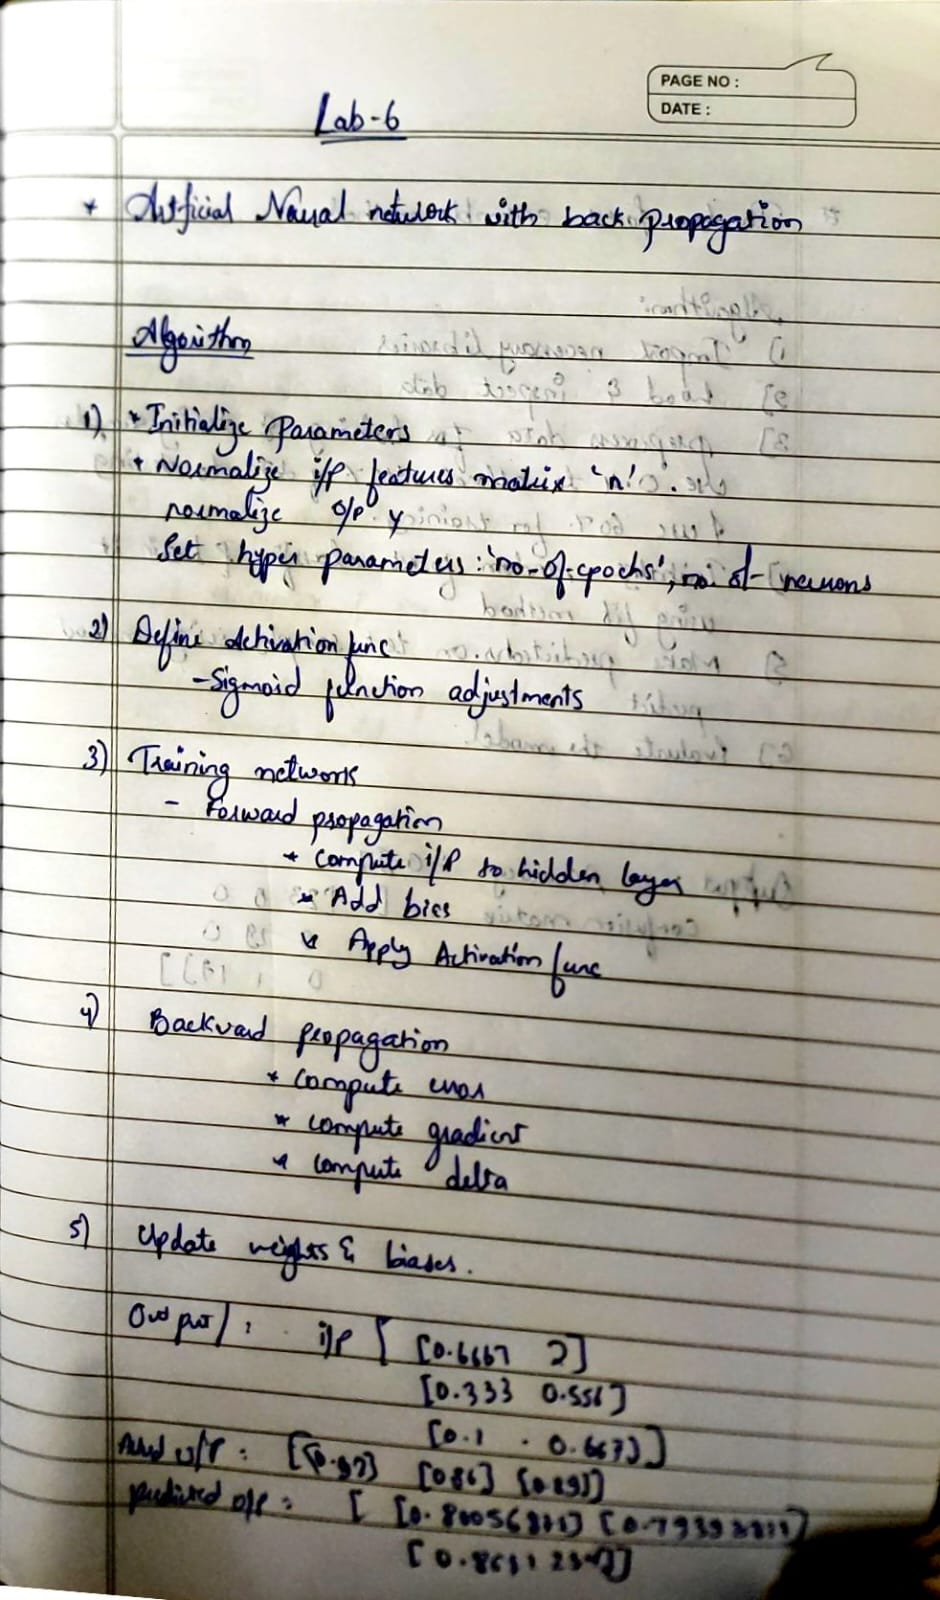 PAGE NO :
DATE :
Lab-6
* Artficial Naural network with back propagation
Algorithm
1) * Initialize Parameters
* Normalize i/p features matrix 'n'.
normalize o/p y
Set hyper parameters : 'no-of-epochs', no. of neurons
2) Define Activation func
- Sigmoid function adjustments
3) Training network
- Forward propagation
* compute i/p to hidden layer
* Add bias
* Apply Activation func
4) Backward propagation
* compute error
* compute gradient
* compute delta
5) Update weights & biases.
Output : i/p [ [0.6667 2]
[0.333 0.556]
[0.1 0.667]]
o/p : [[0.92] [0.86] [0.89]]
predicted o/p : [